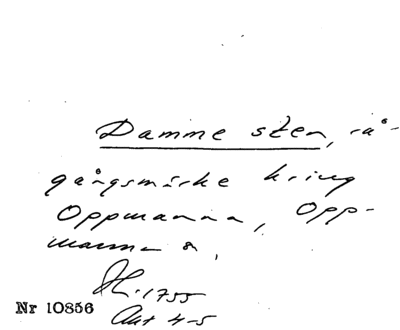 Damme sten, rå-
gångsmärke kring
Oppmanna, Opp-
manna s,
H. 1755
Akt 4-5
Nr 10856